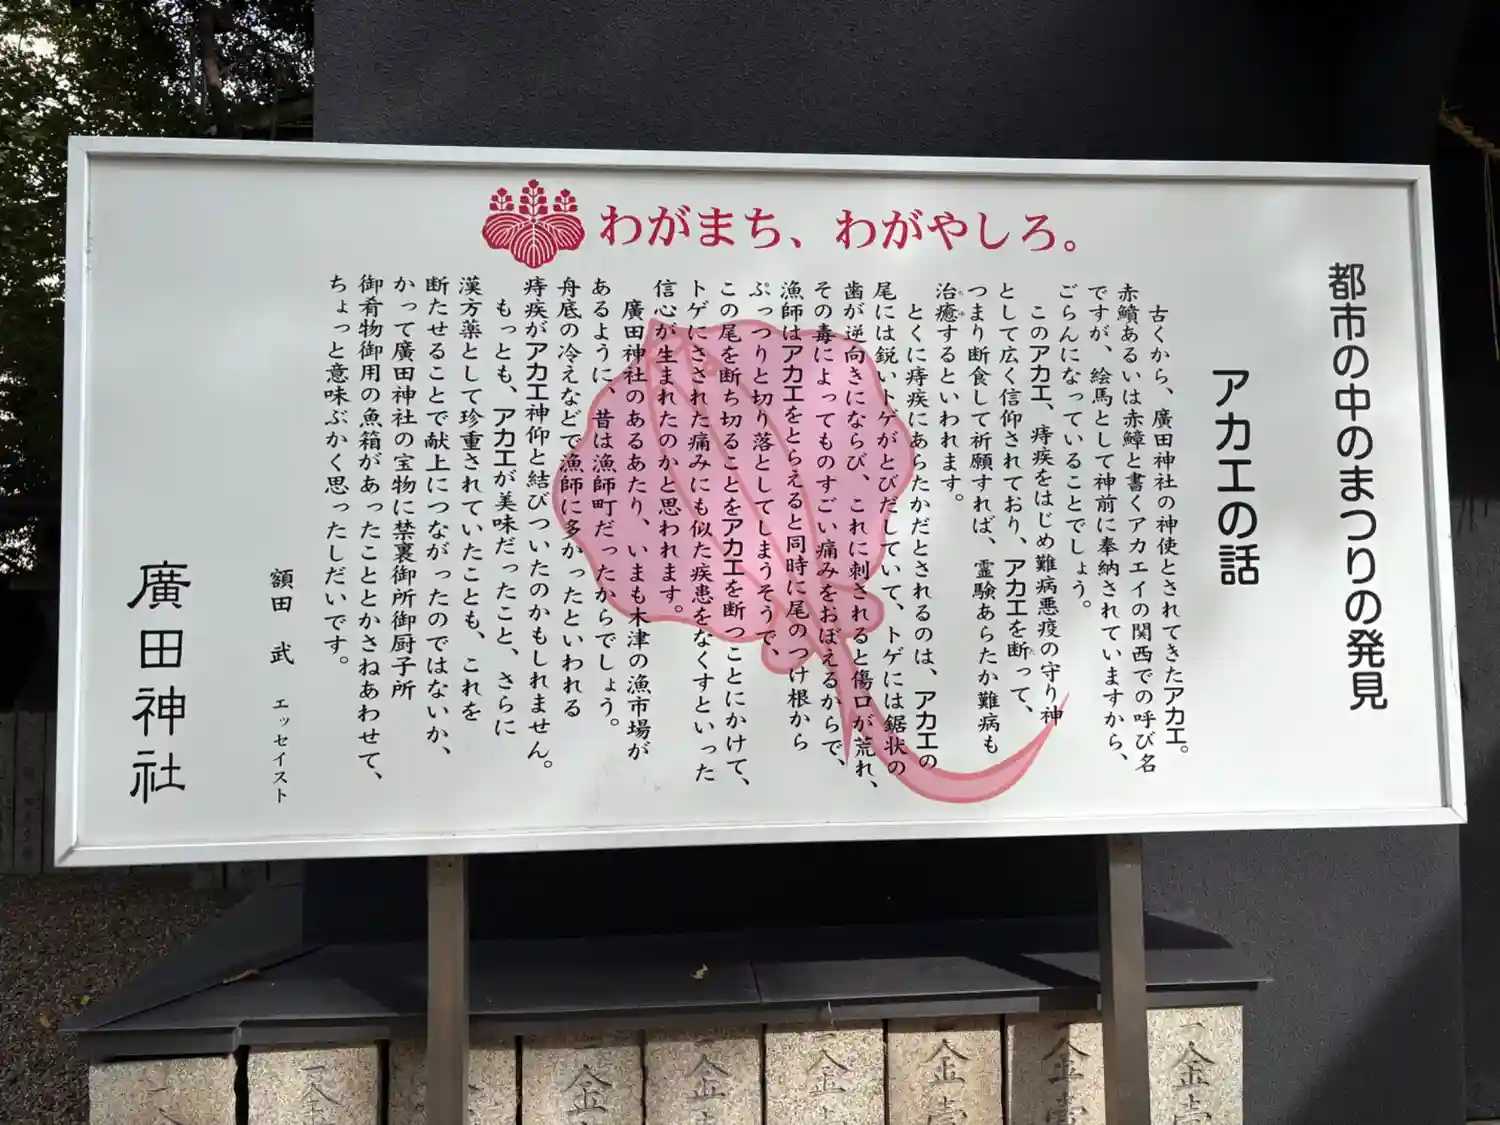 わがまち、わがやしろ。
都市の中のまつりの発見
アカエの話
古くから、廣田神社の神使とされてきたアカエ。
赤鱝あるいは赤鱆と書くアカエイの関西での呼び名
ですが、絵馬として神前に奉納されていますから、
ごらんになっていることでしょう。
このアカエ、痔疾をはじめ難病悪疫の守り神
として広く信仰されており、アカエを断って、
つまり断食して祈願すれば、霊験あらたか難病も
治癒するといわれます。
とくに痔疾にあらたかだとされるのは、アカエの
尾には鋭いトゲがとびだしていて、トゲには鋸状の
歯が逆向きにならび、これに刺されると傷口が荒れ、
その毒によってものすごい痛みをおぼえるからで、
漁師はアカエをとらえると同時に尾のつけ根から
ぷっつりと切り落としてしまうそうで、
この尾を断ち切ることをアカエを断つことにかけて、
トゲにさされた痛みにも似た疾患をなくすといった
信心が生まれたのかと思われます。
廣田神社のあるあたり、いまも木津の漁市場が
あるように、昔は漁師町だったからでしょう。
舟底の冷えなどで漁師に多かったといわれる
痔疾がアカエ神仰と結びついたのかもしれません。
もっとも、アカエが美味だったこと、さらに
漢方薬として珍重されていたことも、これを
断たせることで献上につながったのではないか、
かって廣田神社の宝物に禁裏御所御厨子所
御肴物御用の魚箱があったこととかさねあわせて、
ちょっと意味ぶかく思ったしだいです。
額田 武 エッセイスト
廣田神社
一金
一金
金
金
金
金壱
金
一金